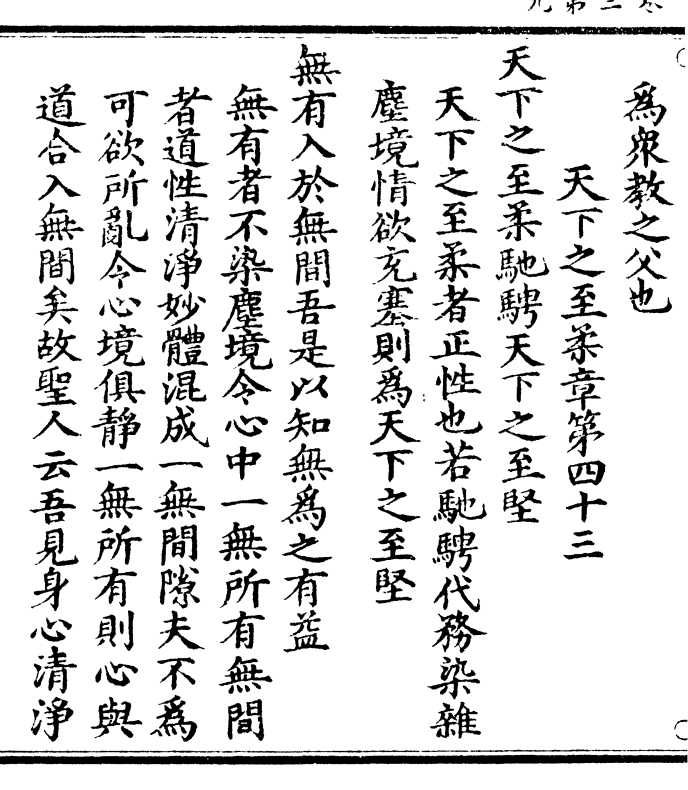 為衆教之父也
天下之至柔章第四十三
天下之至柔馳騁天下之至堅
天下之至柔者正性也若馳騁代務染雜
塵境情欲充塞則為天下之至堅
無有入於無間吾是以知無為之有益
無有者不染塵境令心中一無所有無間
者道性清淨妙體混成一無間隙夫不為
可欲所亂令心境俱靜一無所有則心與
道合入無間矣故聖人云吾見身心清淨